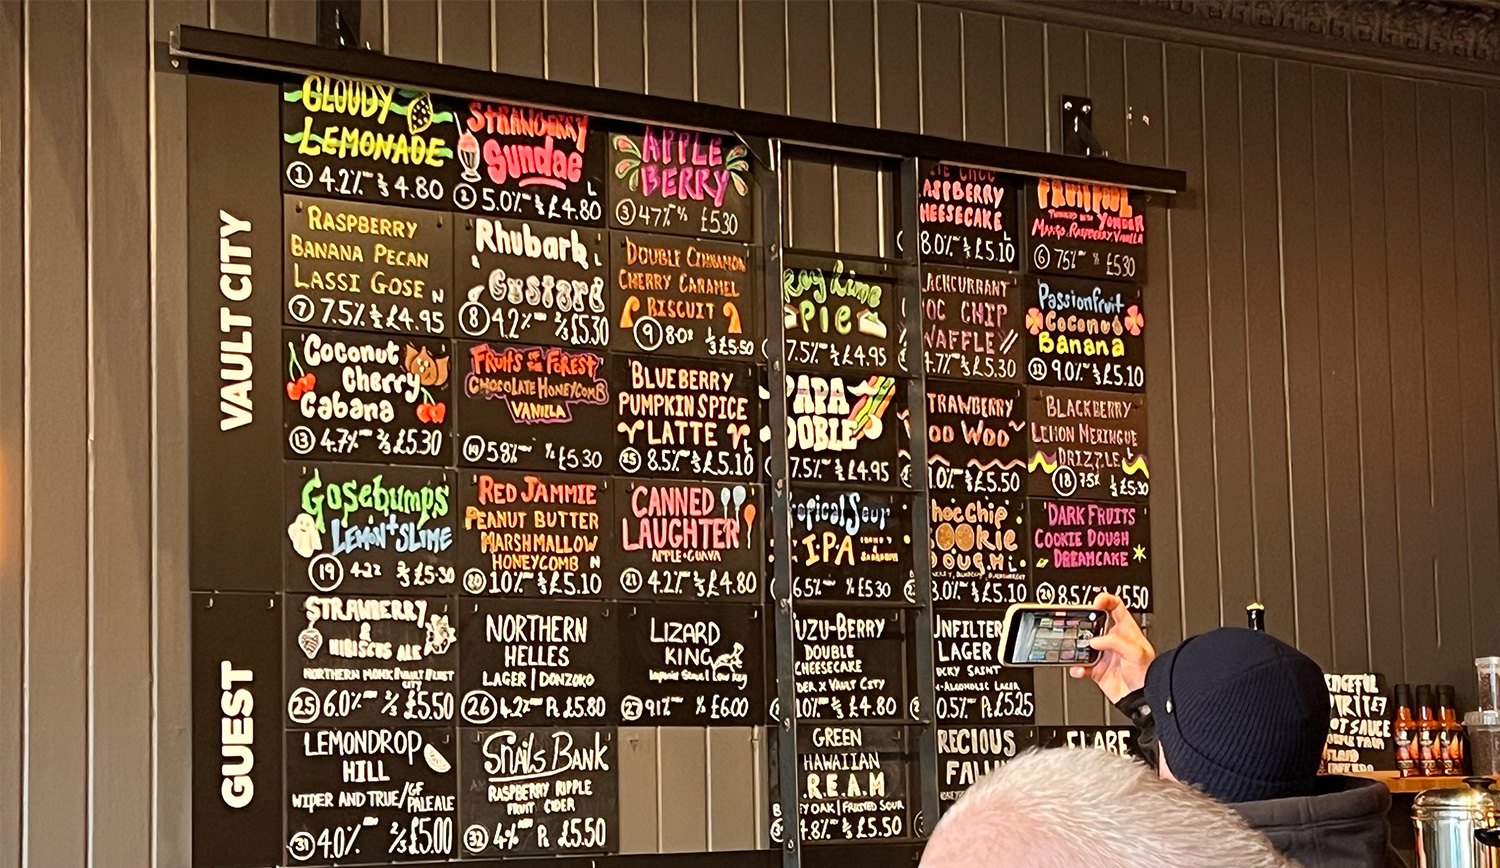 VAULT CITY
CLOUDY
LEMONADE
1 4.2% ⅔ £4.80
STRAWBERRY
Sundae
L
2 5.0% ½ £4.80
APPLE
BERRY
3 4.7% ⅔ £5.30
RASPBERRY
HEESECAKE
8.0% ⅓ £5.10
FRUITFUL
YONDER
MANGO, RASPBERRY, VANILLA
6 £5.30
RASPBERRY
BANANA PECAN
LASSI GOSE N
7 7.5% ½ £4.95
Rhubarb
Custard
8 4.2% ⅔ £5.30
DOUBLE CINNAMON
CHERRY CARAMEL
BISCUIT
9 8.0% ⅓ £5.50
Key Lime
Pie
7.5% ½ £4.95
ACKCURRANT
OC CHIP
WAFFLE
4.7% £5.30
Passionfruit
Coconut
Banana
12 9.0% ⅓ £5.10
Coconut
Cherry
Cabana
13 4.7% ⅔ £5.30
FRUITS OF THE FOREST
CHOCOLATE HONEYCOMB
VANILLA
14 5.8% £5.30
BLUEBERRY
PUMPKIN SPICE
LATTE
L
15 8.5% ⅓ £5.10
PAPA
DOBLE
7.5% ½ £4.95
TRAWBERRY
OO WOO
£5.50
BLACKBERRY
LEMON MERINGUE
DRIZZLE L
18 7.5% ⅔ £5.30
Gosebumps
LEMON + SLIME
19 4.2% ⅔ £5.30
RED JAMMIE
PEANUT BUTTER
MARSHMALLOW
HONEYCOMB N
20 10% ⅓ £5.10
CANNED
LAUGHTER
APPLE + GUAVA
21 4.2% ⅔ £4.80
ropical Sour
IPA
6.5% £5.30
hoc Chip
COOKIE
DOUGH
£5.10
DARK FRUITS
COOKIE DOUGH
DREAMCAKE
24 8.5% £5.50
GUEST
STRAWBERRY
&
HIBISCUS ALE
NORTHERN MONK
CITY
25 6.0% ⅔ £5.50
NORTHERN
HELLES
LAGER | DONZOKO
26 4.2% Pt £5.80
LIZARD
KING
Imperial Stout | Low Key
27 9.1% ⅓ £6.00
UZU-BERRY
DOUBLE
CHEESECAKE
DER X VAULT CITY
10% ⅓ £4.80
UNFILTER
LAGER
CKY SAINT
N-ALCOHOLIC LAGER
0.5% Pt £5.25
LEMONDROP
HILL
WIPER AND TRUE/GF PALE ALE
31 4.0% ⅔ £5.00
Snails Bank
RASPBERRY RIPPLE
FRUIT CIDER
32 4% Pt £5.50
GREEN
HAWAIIAN
.R.E.A.M
EY OAK | FRUITED SOUR
4.8% ½ £5.50
RECIOUS
FALL
FLARE
OT SAUCE